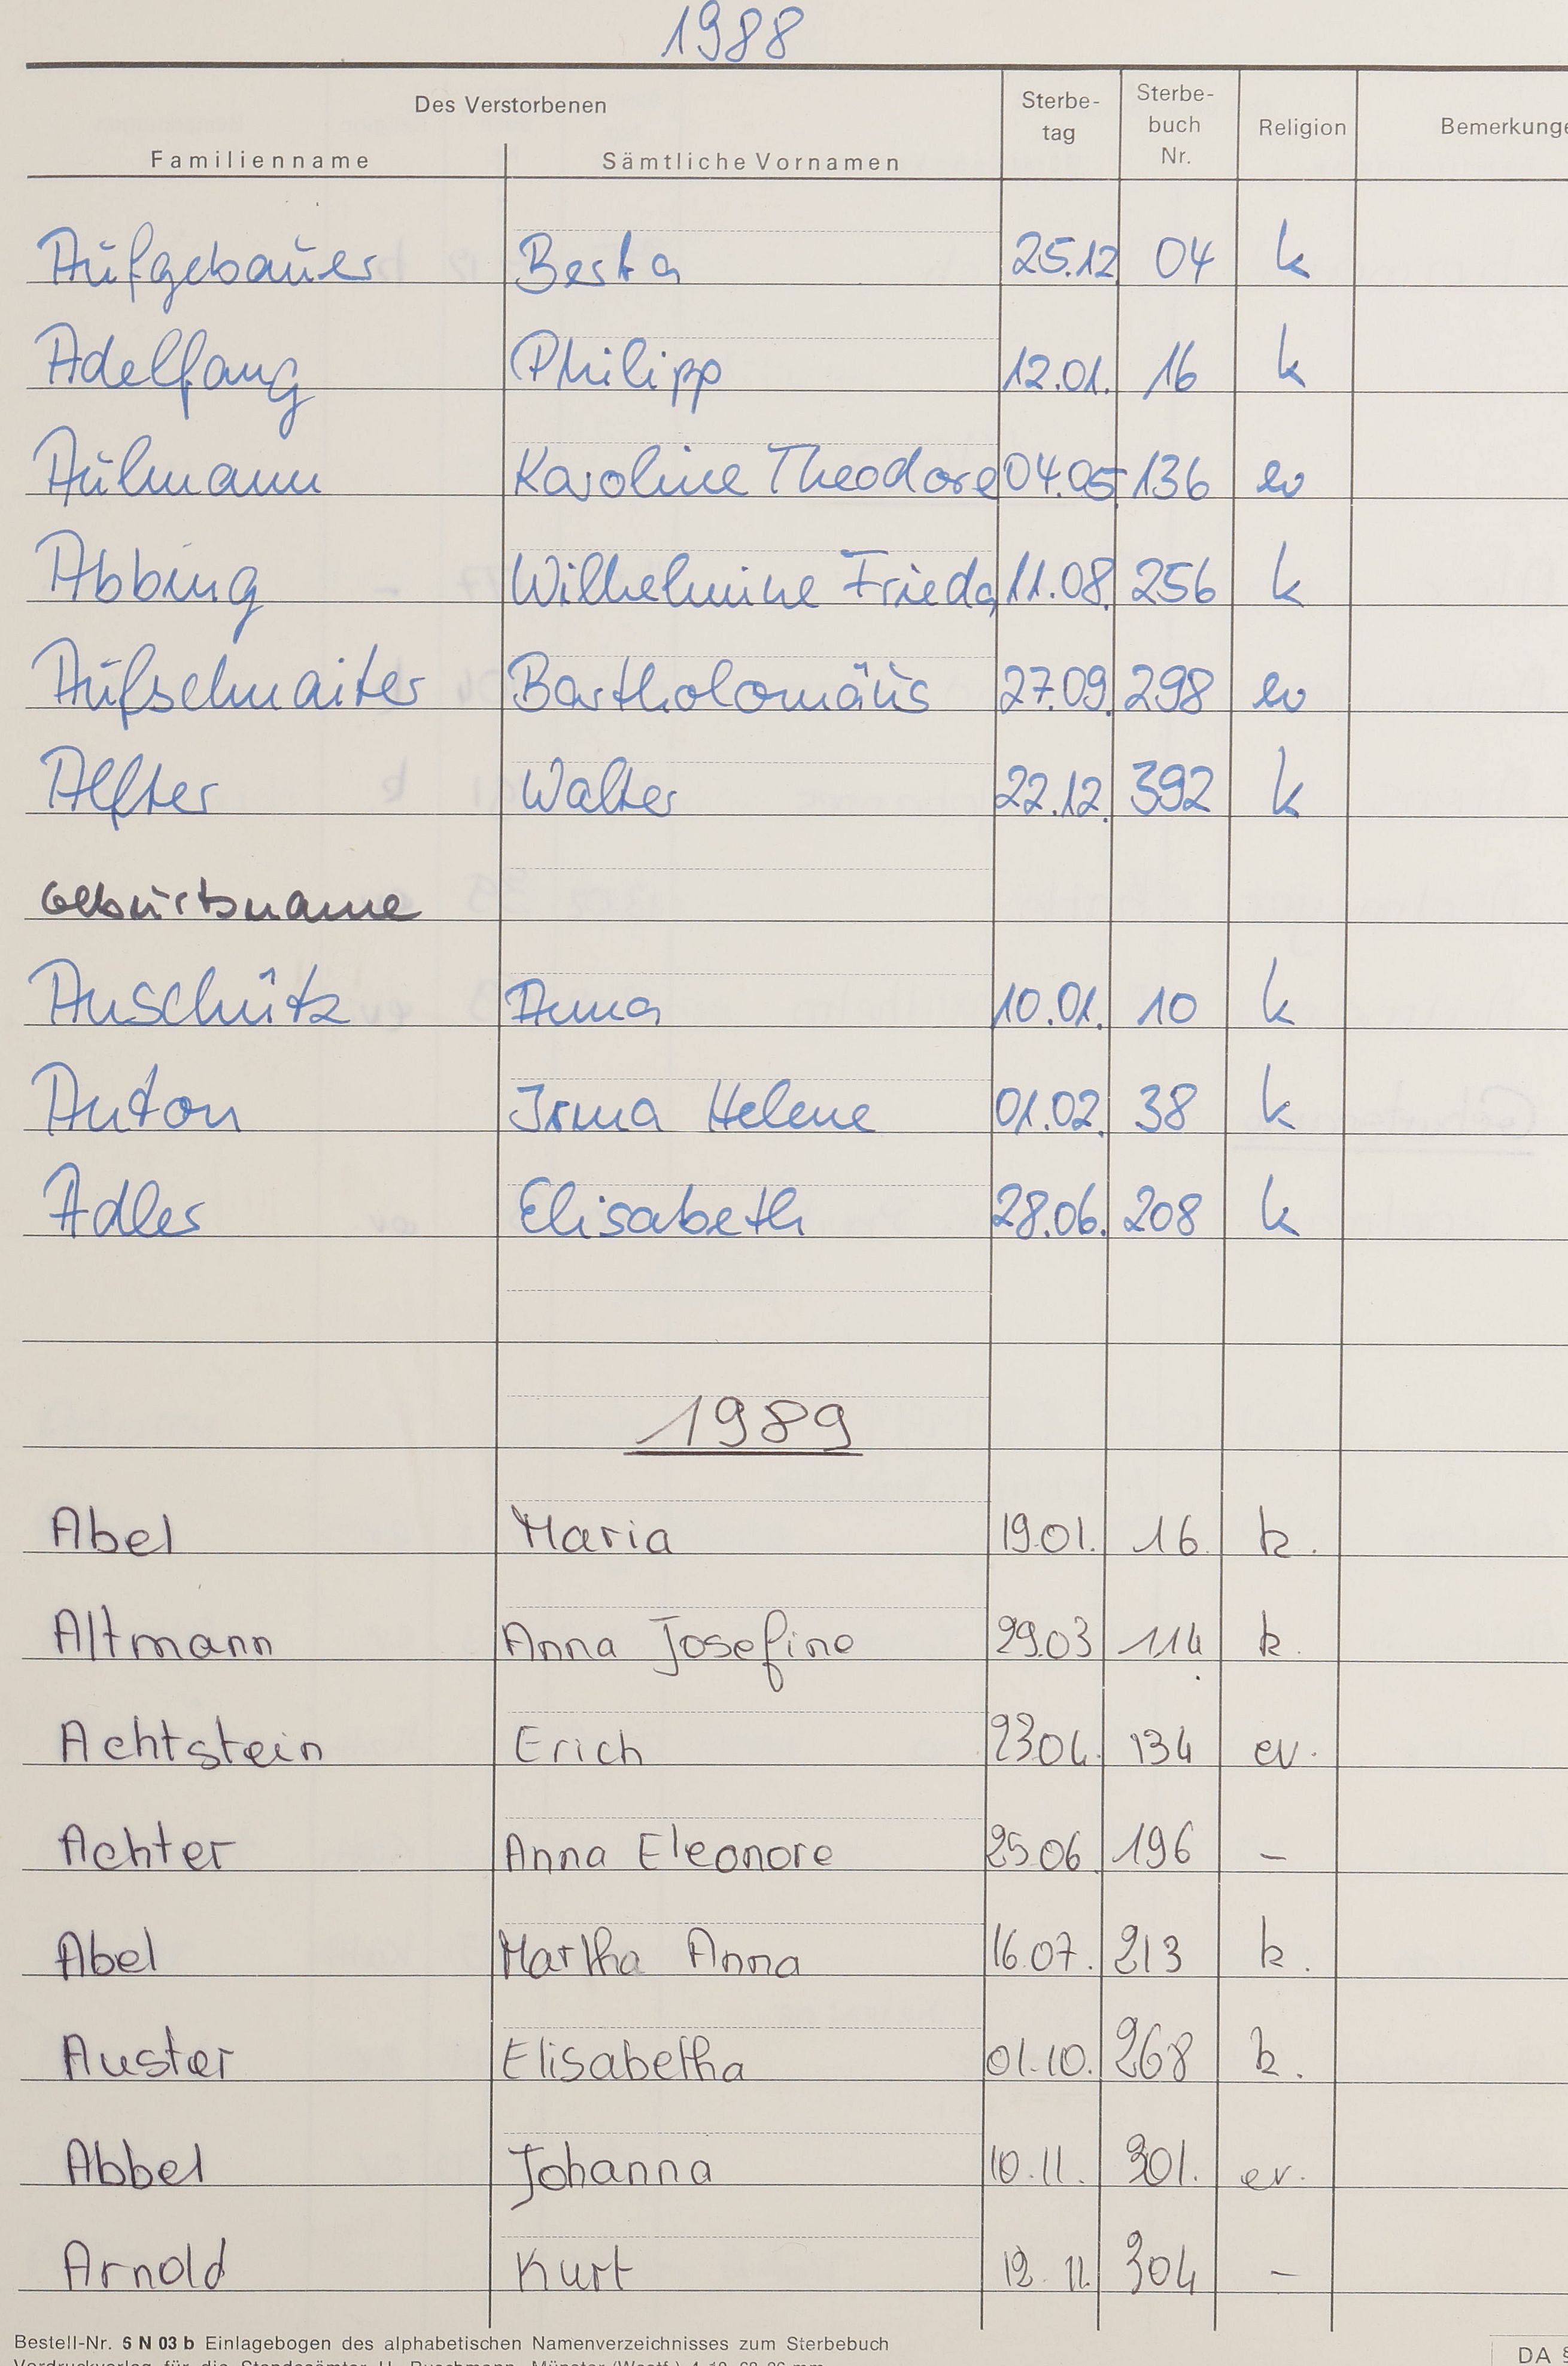 1988
Des Verstorbenen
Sterbe-
tag
Sterbe-
buch
Nr.
Religion
Familienname Sämtliche Vornamen
Aufgebauer Berta 25.12 04 k
Adelfang Philipp 12.01. 16 k
Aulmann Karoline Theodore 04.05. 136 ev
Abbing Wilhelmine Frieda 11.08. 256 k
Aufschnaiter Bartholomäus 27.09. 298 ev
Alfter Walter 22.12. 392 k
Geburtsname
Anschütz Anna 10.01. 10 k
Anton Irma Helene 01.02. 38 k
Adler Elisabeth 28.06. 208 k
1989
Abel Maria 19.01. 16. k.
Altmann Anna Josefine 29.03 114 k.
Achtstein Erich 23.04. 134 ev.
Achter Anna Eleonore 25.06 196 –
Abel Martha Anna 16.07. 213 k.
Auster Elisabetha 01.10. 268 k.
Abbel Johanna 10.11. 301. ev.
Arnold Kurt 12.11. 304 –
Bestell-Nr. 6 N 03 b Einlagebogen des alphabetischen Namenverzeichnisses zum Sterbebuch
DA